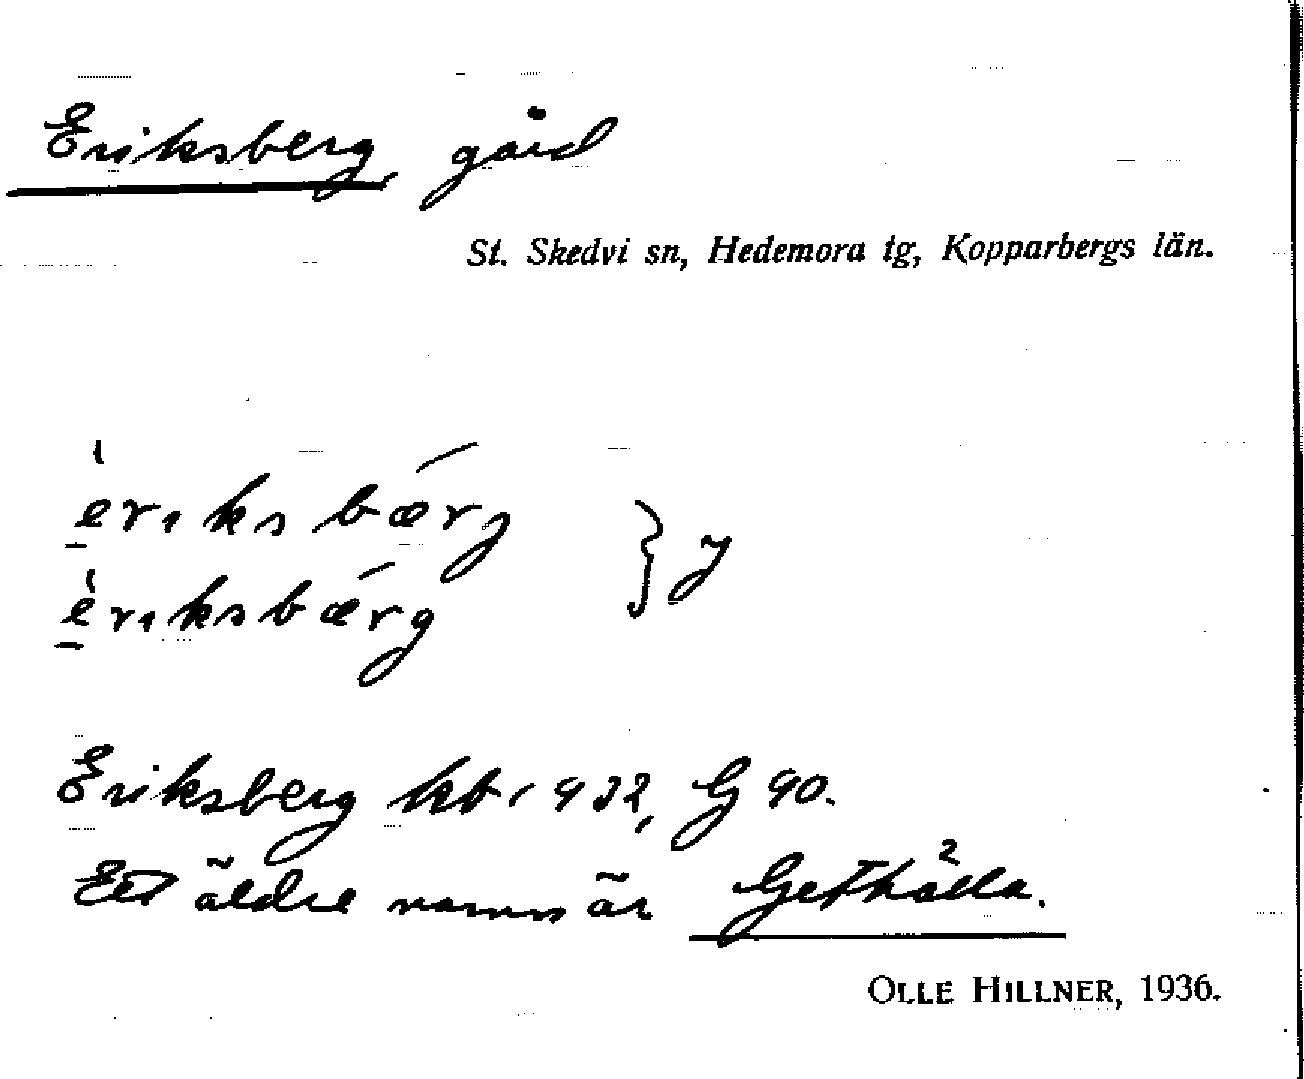 Eriksberg, gård
St. Skedvi sn, Hedemora tg, Kopparbergs län.
èriksbærj
èriksbærg } J
Eriksberg kb 1932, G 90.
Ett äldre namn är Gethålla.
OLLE HILLNER, 1936.